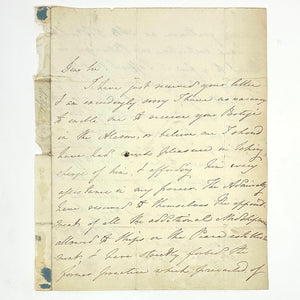 Dear Sir
I have just received your letter
I am exceedingly sorry I have no vacancy
to enable me to receive your Protegé
in the Alceme, or believe me I should
have had much pleasure in taking
charge of him, & affording him every
assistance in my power. The Admiralty
have reserved to themselves the appoint
ments of all the additional Midshipmen
allowed to Ships on the Peace establish
ment, & have strictly forbid the
former practice which prevailed of